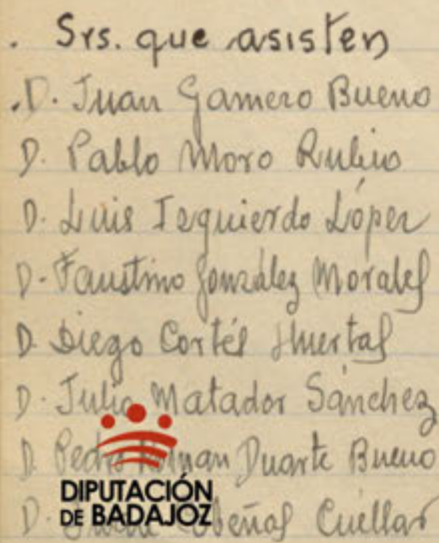 . Srs. que asisten
. D. Juan Gamero Bueno
D. Pablo Moro Rubio
D. Luis Izquierdo López
D. Faustino González Morales
D. Diego Cortés Huertas
D. Julio Matador Sánchez
D. Pedro Duarte Bueno
DIPUTACIÓN
DE BADAJOZ
D. Cuéllar